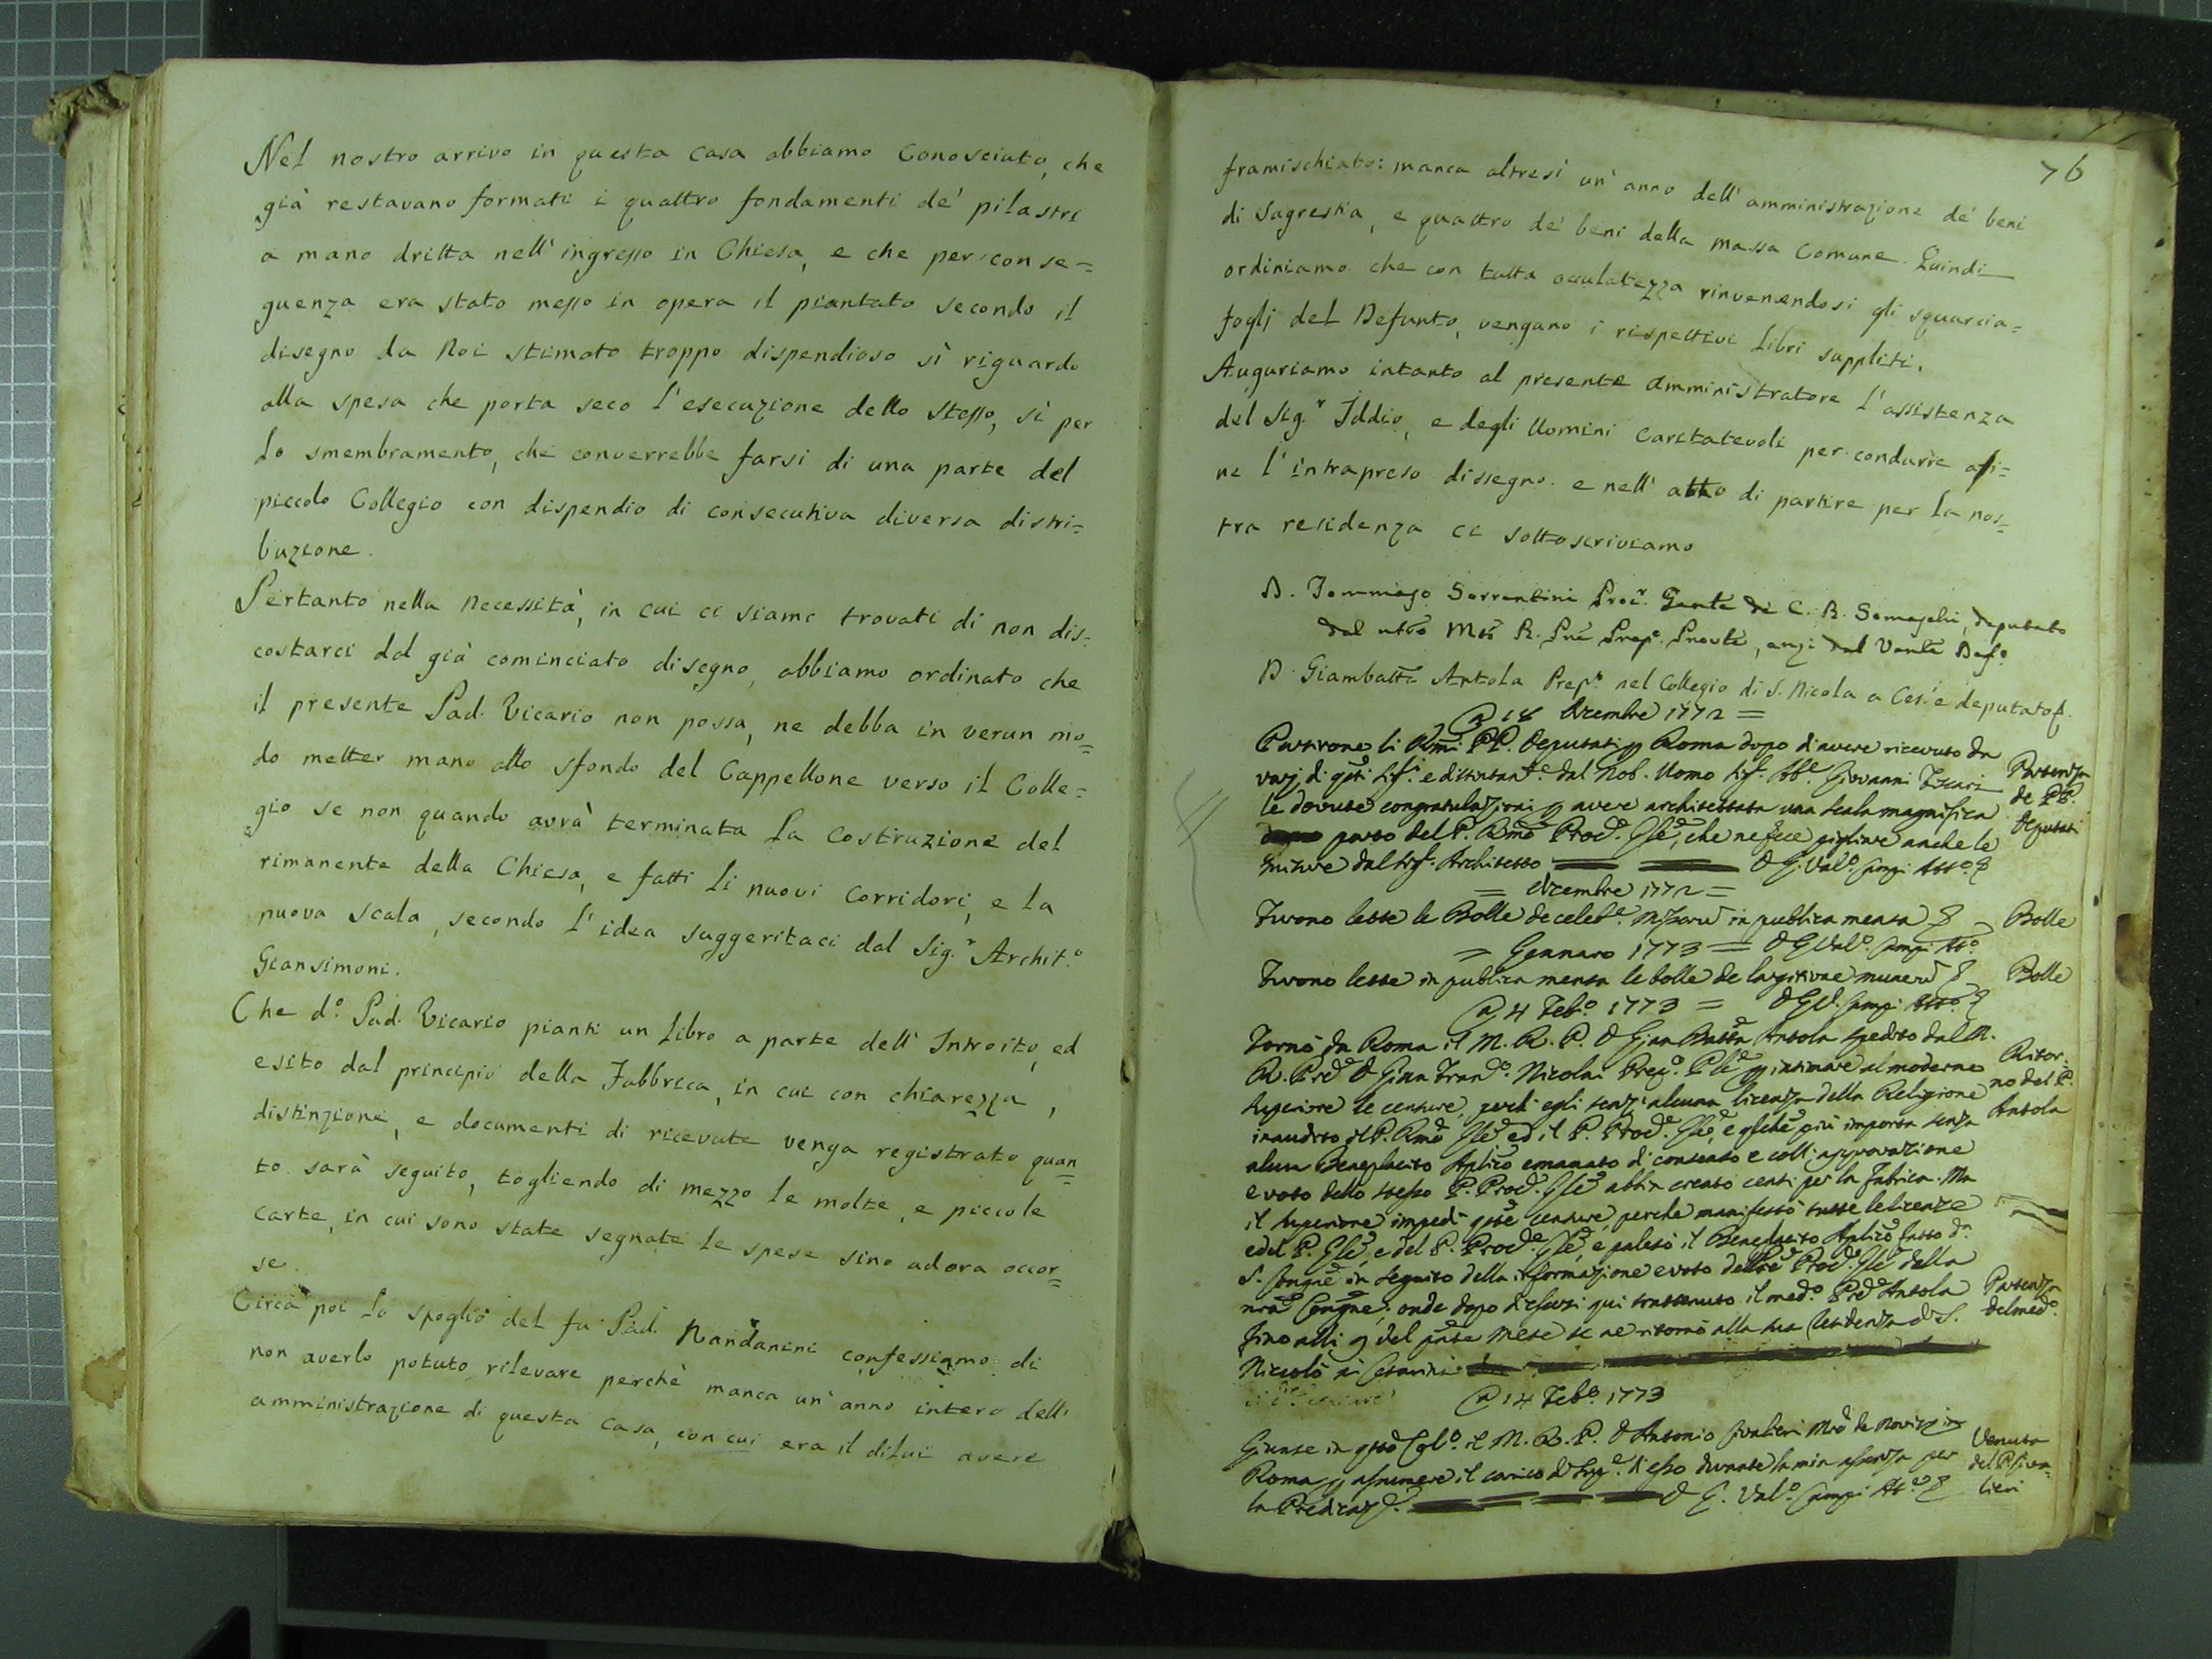 Nel nostro arrivo in questa casa abbiamo Conosciuto, che
già restavano formati i quattro fondamenti de' pilastri
a mano dritta nell'ingresso in Chiesa, e che per conse=
guenza era stato messo in opera il piantato secondo il
disegno da Noi stimato troppo dispendioso sì riguardo
alla spesa che porta seco l'esecuzione dello stesso, sì per
lo smembramento, che converrebbe farsi di una parte del
piccolo Collegio con dispendio di consecutiva diversa distri=
buzione.
Pertanto nella necessità, in cui ci siamo trovati di non dis=
costarci dal già cominciato disegno, abbiamo ordinato che
il presente Pad. Vicario non possa, ne debba in verun mo=
do metter mano allo sfondo del Cappellone verso il Colle=
gio se non quando avrà terminata la Costruzione del
rimanente della Chiesa, e fatti li nuovi Corridori, e la
nuova scala, secondo l'idea suggeritaci dal Sig.r Archit.o
Giansimoni.
Che d.o Pad. Vicario pianti un Libro a parte dell'Introito, ed
esito dal principio della Fabbrica, in cui con chiarezza,
distinzione, e documenti di ricevute venga registrato quan=
to sarà seguito, togliendo di mezzo le molte, e piccole
carte, in cui sono state segnate le spese sino adora occor=
se.
Circa poi lo spoglio del fu Pad. Nandanini confessiamo di
non averlo potuto rilevare perchè manca un'anno intero dell'
amministrazione di questa Casa, con cui era il dilui avere
76
framischiato: manca altresì un'anno dell'amministrazione de' beni
di Sagrestia, e quattro de' beni della massa Comune. Quindi
ordiniamo che con tutta oculatezza rinvenendosi gli squarcia=
foglj del Defunto, vengano i rispettivi Libri suppliti.
Auguriamo intanto al presente Amministratore l'assistenza
del Sig.r Iddio, e degli Uomini Caritatevoli per condurre afi=
ne l'intrapreso dissegno. e nell'atto di partire per la nos=
tra residenza ci sottoscriviamo
D. Tommaso Sorrentini Proc.r Gentē de C. R. Somaschi, deputato
dal R. Prē Prep.o
D. Giambattā Antola Prep.o nel Collegio di S. Nicola a Ces.i e deputato
@ 18 Dzembre 1772 =
Partirono li Rm̄i PP. Deputati p Roma dopo di avere ricevuto da
varj di q̄sti Sig.i e distintant.e dal Nob. Uomo Sig. Giovanni
le dovute congratulazioni p avere architettata una scala magnifica
parto del P. Rm̄o Proc.e Gl̄e, che ne fece pigliare anche le
misure dal Sig. Architetto D G. Val.o Att.o
Partenza
de PP.
Deputati
= dzembre 1772 =
Furono lette le Bolle de celeb.e Missarū in publica mensa
Bolle
= Gennaro 1773 = D G Val.o Att.o
Furono lette in publica mensa le bolle de largitione munerū
Bolle
@ 4 Feb.o 1773 = D G V. Att.o
Tornò da Roma il M. R. P. D Gian Battā Antola spedito dal M.
R. Prē D Gian Fran.o Nicolai P p intimare al moderno
superiore le censure, perchè egli senz'alcuna licenza della Religione
inaudito il P. Rm̄o Gl̄e ed il P. Proc.e Gl̄e, e più importa senza
alcun Beneplacito Aplico emanato di consenso e coll'approvazione
e voto dello stesso P. Proc.e Gl̄e abbia creato censi per la fabrica. Ma
il superiore impedì q̄ste censure, perche manifestò tutte le licenze
e del P. Gl̄e, e del P. Proc.e Gl̄e, e palesò il Beneplacito Aplico fatto d.a
S. Congn̄e in seguito della informazione e voto Proc.e Gl̄e della
nrā Congn̄e; onde dopo di essersi qui trattenuto il med.o Prē Antola
fino alli 9 del pn̄te mese se ne ritornò alla sua residenza di S.
Niccolò ai Cesarini
Ritor=
no del P.
Antola
Partenza
del med.o
@ 14 Feb.o 1773
Giunse in q̄sto Col.o il M. R. P. D Antonio Civalieri Mrō de Novizi in
Roma p assumere il carico di Sup.e di esso durante la mia assenza per
la Predicaz.e D G. Val.o Att.o
Venuta
del P. Civa=
lieri